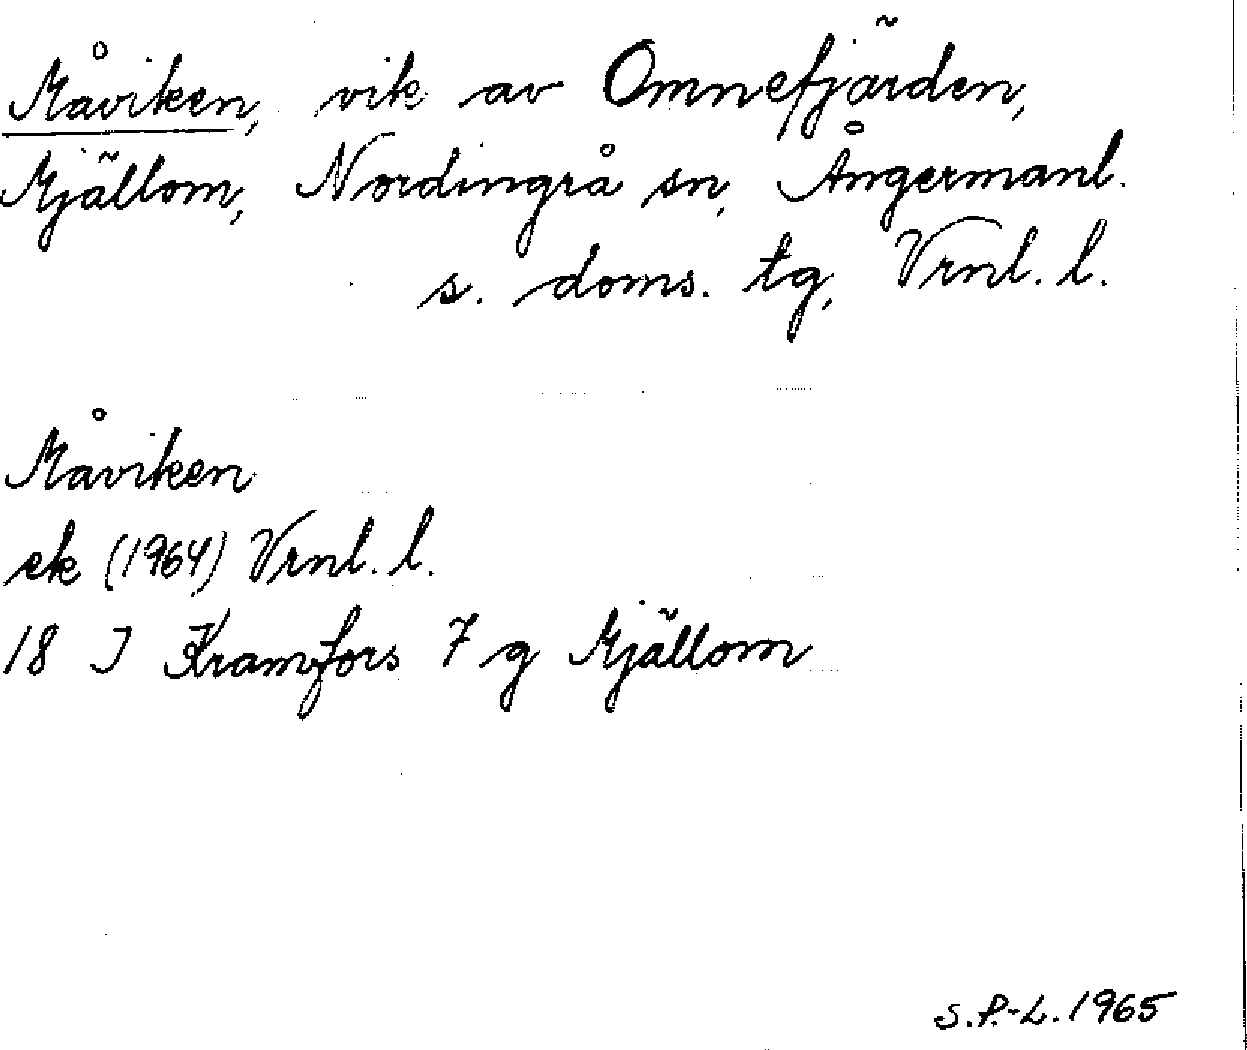 Måviken, vik av Omnefjärden,
Mjällom, Nordingrå sn, Ångermanl.
s. doms. tg, Vrnl. l.
Måviken
ek (1964) Vrnl. l.
18 I Kramfors 7 g Mjällom
S.P.-L. 1965